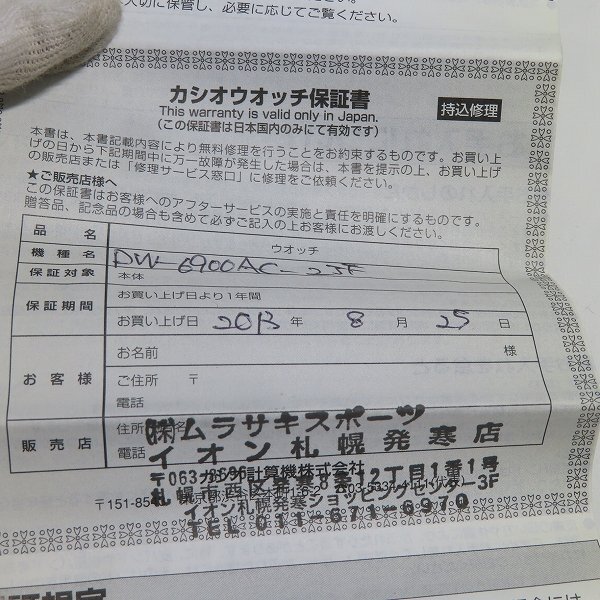 切に保管し、必要に応じてご覧ください。
カシオウオッチ保証書
This warranty is valid only in Japan.
(この保証書は日本国内のみにて有効です)
持込修理
本書は、本書記載内容により無料修理を行うことをお約束するものです。お買い上
げの日から下記期間中に万一故障が発生した場合は、本書を提示の上、お買い上げ
の販売店または「修理サービス窓口」に修理をご依頼ください。
★ご販売店様へ
この保証書はお客様へのアフターサービスの実施と責任を明確にするものです。
贈答品、記念品の場合も含めて必ずご記入の上お客様にお渡しください。
品名 ウオッチ
機種名 DW-6900AC-2JF
保証対象 本体
保証期間 お買い上げ日より1年間
お買い上げ日 2013 年 8 月 25 日
お客様 お名前 様
ご住所 〒
電話
販売店 住所 名
電話
㈱ムラサキスポーツ
イオン札幌発寒店
カシオ計算機株式会社
〒063- 8条12丁目1番1号
札幌市西区発寒
〒151-85
イオン札幌発寒ショッピングセンター3F
TEL 011-671-6970